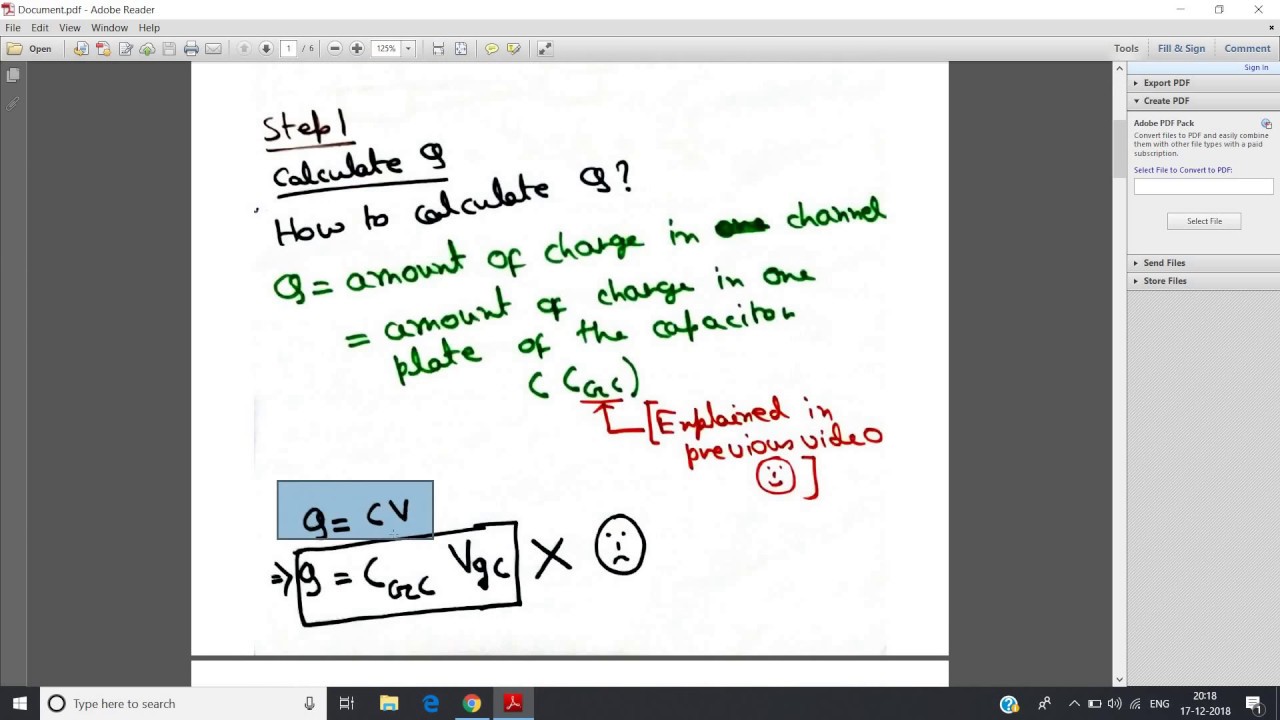 Document.pdf - Adobe Reader
File Edit View Window Help
Open 1 / 6 125% Tools Fill & Sign Comment
Sign In
Export PDF
Create PDF
Adobe PDF Pack
Convert files to PDF and easily combine
them with other file types with a paid
subscription.
Select File to Convert to PDF:
Select File
Send Files
Store Files
Step1
Calculate Q
How to calculate Q?
Q = amount of charge in channel
= amount of charge in one
plate of the capacitor
(CGC)
[Explained in
previous video
]
Q = CV
⇒ Q = CGC Vgc X
Type here to search
ENG
20:18
17-12-2018
1